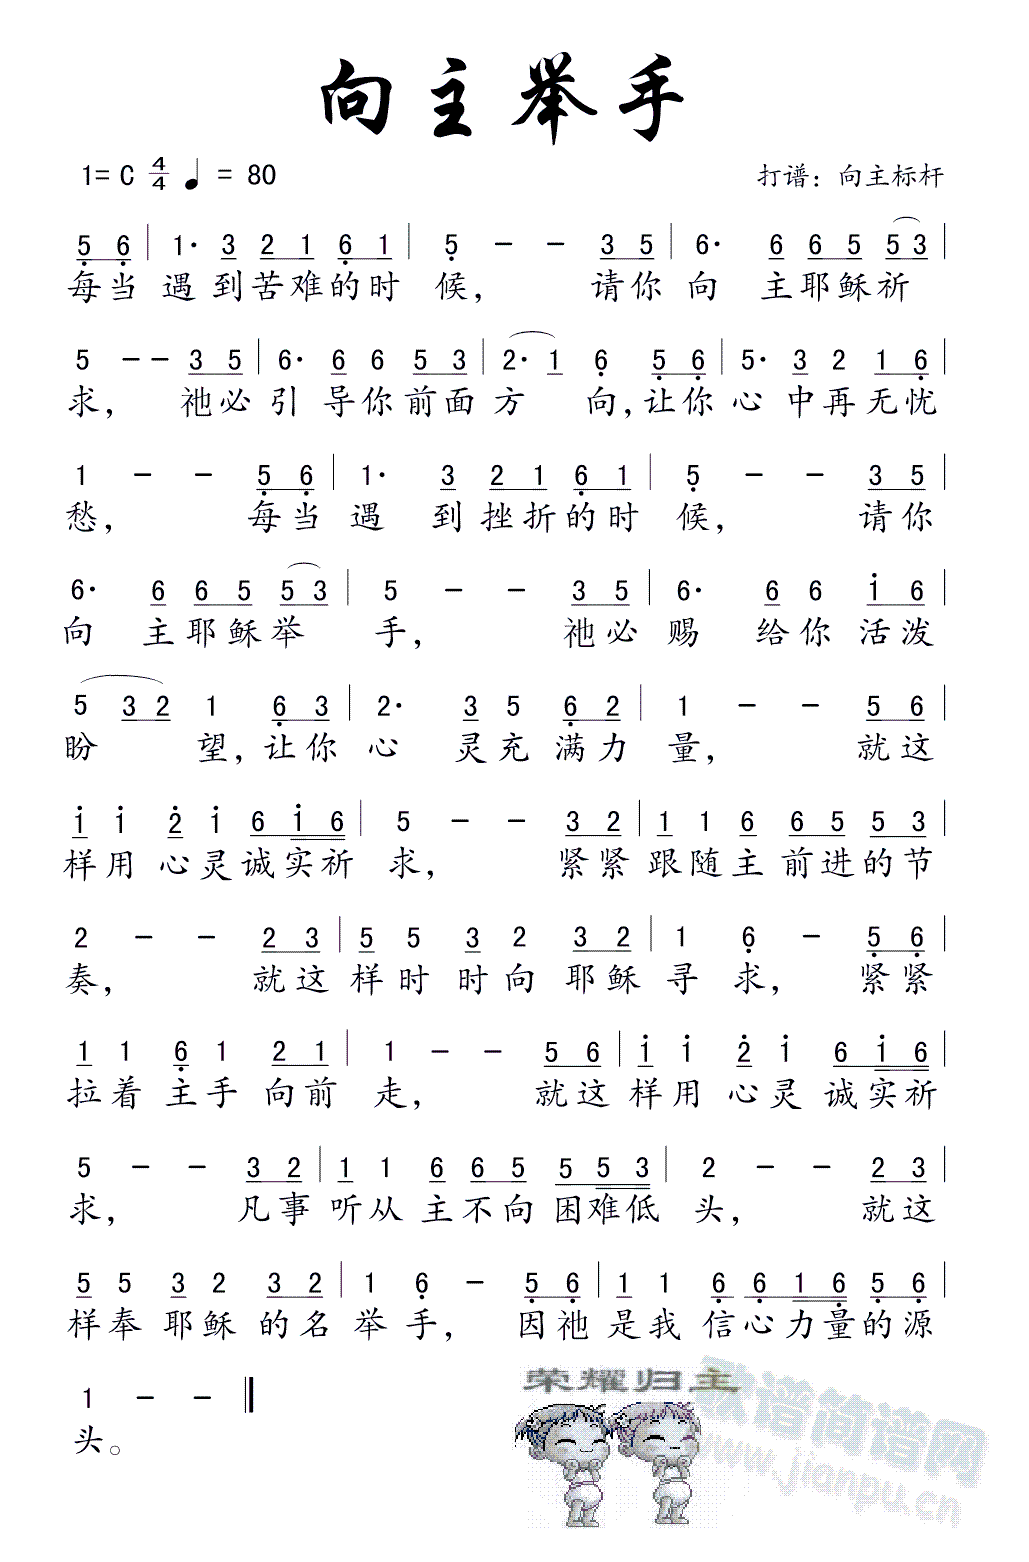 向主举手
1=C 4/4 ♩= 80 打谱：向主标杆
5̣ 6̣ | 1· 3 2 1 6̣ 1 | 5̣ - - 3 5 | 6· 6 6 5 5 3 |
每当 遇到苦难的时 候， 请你 向 主耶稣祈
5 - - 3 5 | 6· 6 6 5 3 | 2· 1 6̣ 5̣ 6̣ | 5̣· 3̣ 2 1 6̣ |
求， 祂必 引 导你前面 方 向，让你 心 中再无忧
1 - - 5̣ 6̣ | 1· 3 2 1 6̣ 1 | 5̣ - - 3 5 |
愁， 每当 遇 到挫折的时 候， 请你
6· 6 6 5 5 3 | 5 - - 3 5 | 6· 6 6 i 6 |
向 主耶稣举 手， 祂必 赐 给你活泼
5 3 2 1 6̣ 3 | 2· 3 5 6̣ 2 | 1 - - 5 6 |
盼 望，让你 心 灵充满力 量， 就这
i i 2̇ i 6 i 6 | 5 - - 3 2 | 1 1 6 6 5 5 3 |
样用 心灵诚实祈 求， 紧紧 跟随主前进的节
2 - - 2 3 | 5 5 3 2 3 2 | 1 6̣ - 5̣ 6̣ |
奏， 就这 样时 时向 耶稣 寻 求， 紧紧
1 1 6̣ 1 2 1 | 1 - - 5 6 | i i 2̇ i 6 i 6 |
拉着 主手 向前 走， 就这 样用 心灵 诚实祈
5 - - 3 2 | 1 1 6 6 5 5 5 3 | 2 - - 2 3 |
求， 凡事 听从 主不向困难低 头， 就这
5 5 3 2 3 2 | 1 6̣ - 5̣ 6̣ | 1 1 6̣ 6̣ 1 6̣ 5̣ 6̣ |
样奉 耶稣 的名 举 手， 因祂 是我 信心力量的源
1 - - ‖
头。
荣耀归主
歌谱简谱网
www.jianpu.cn